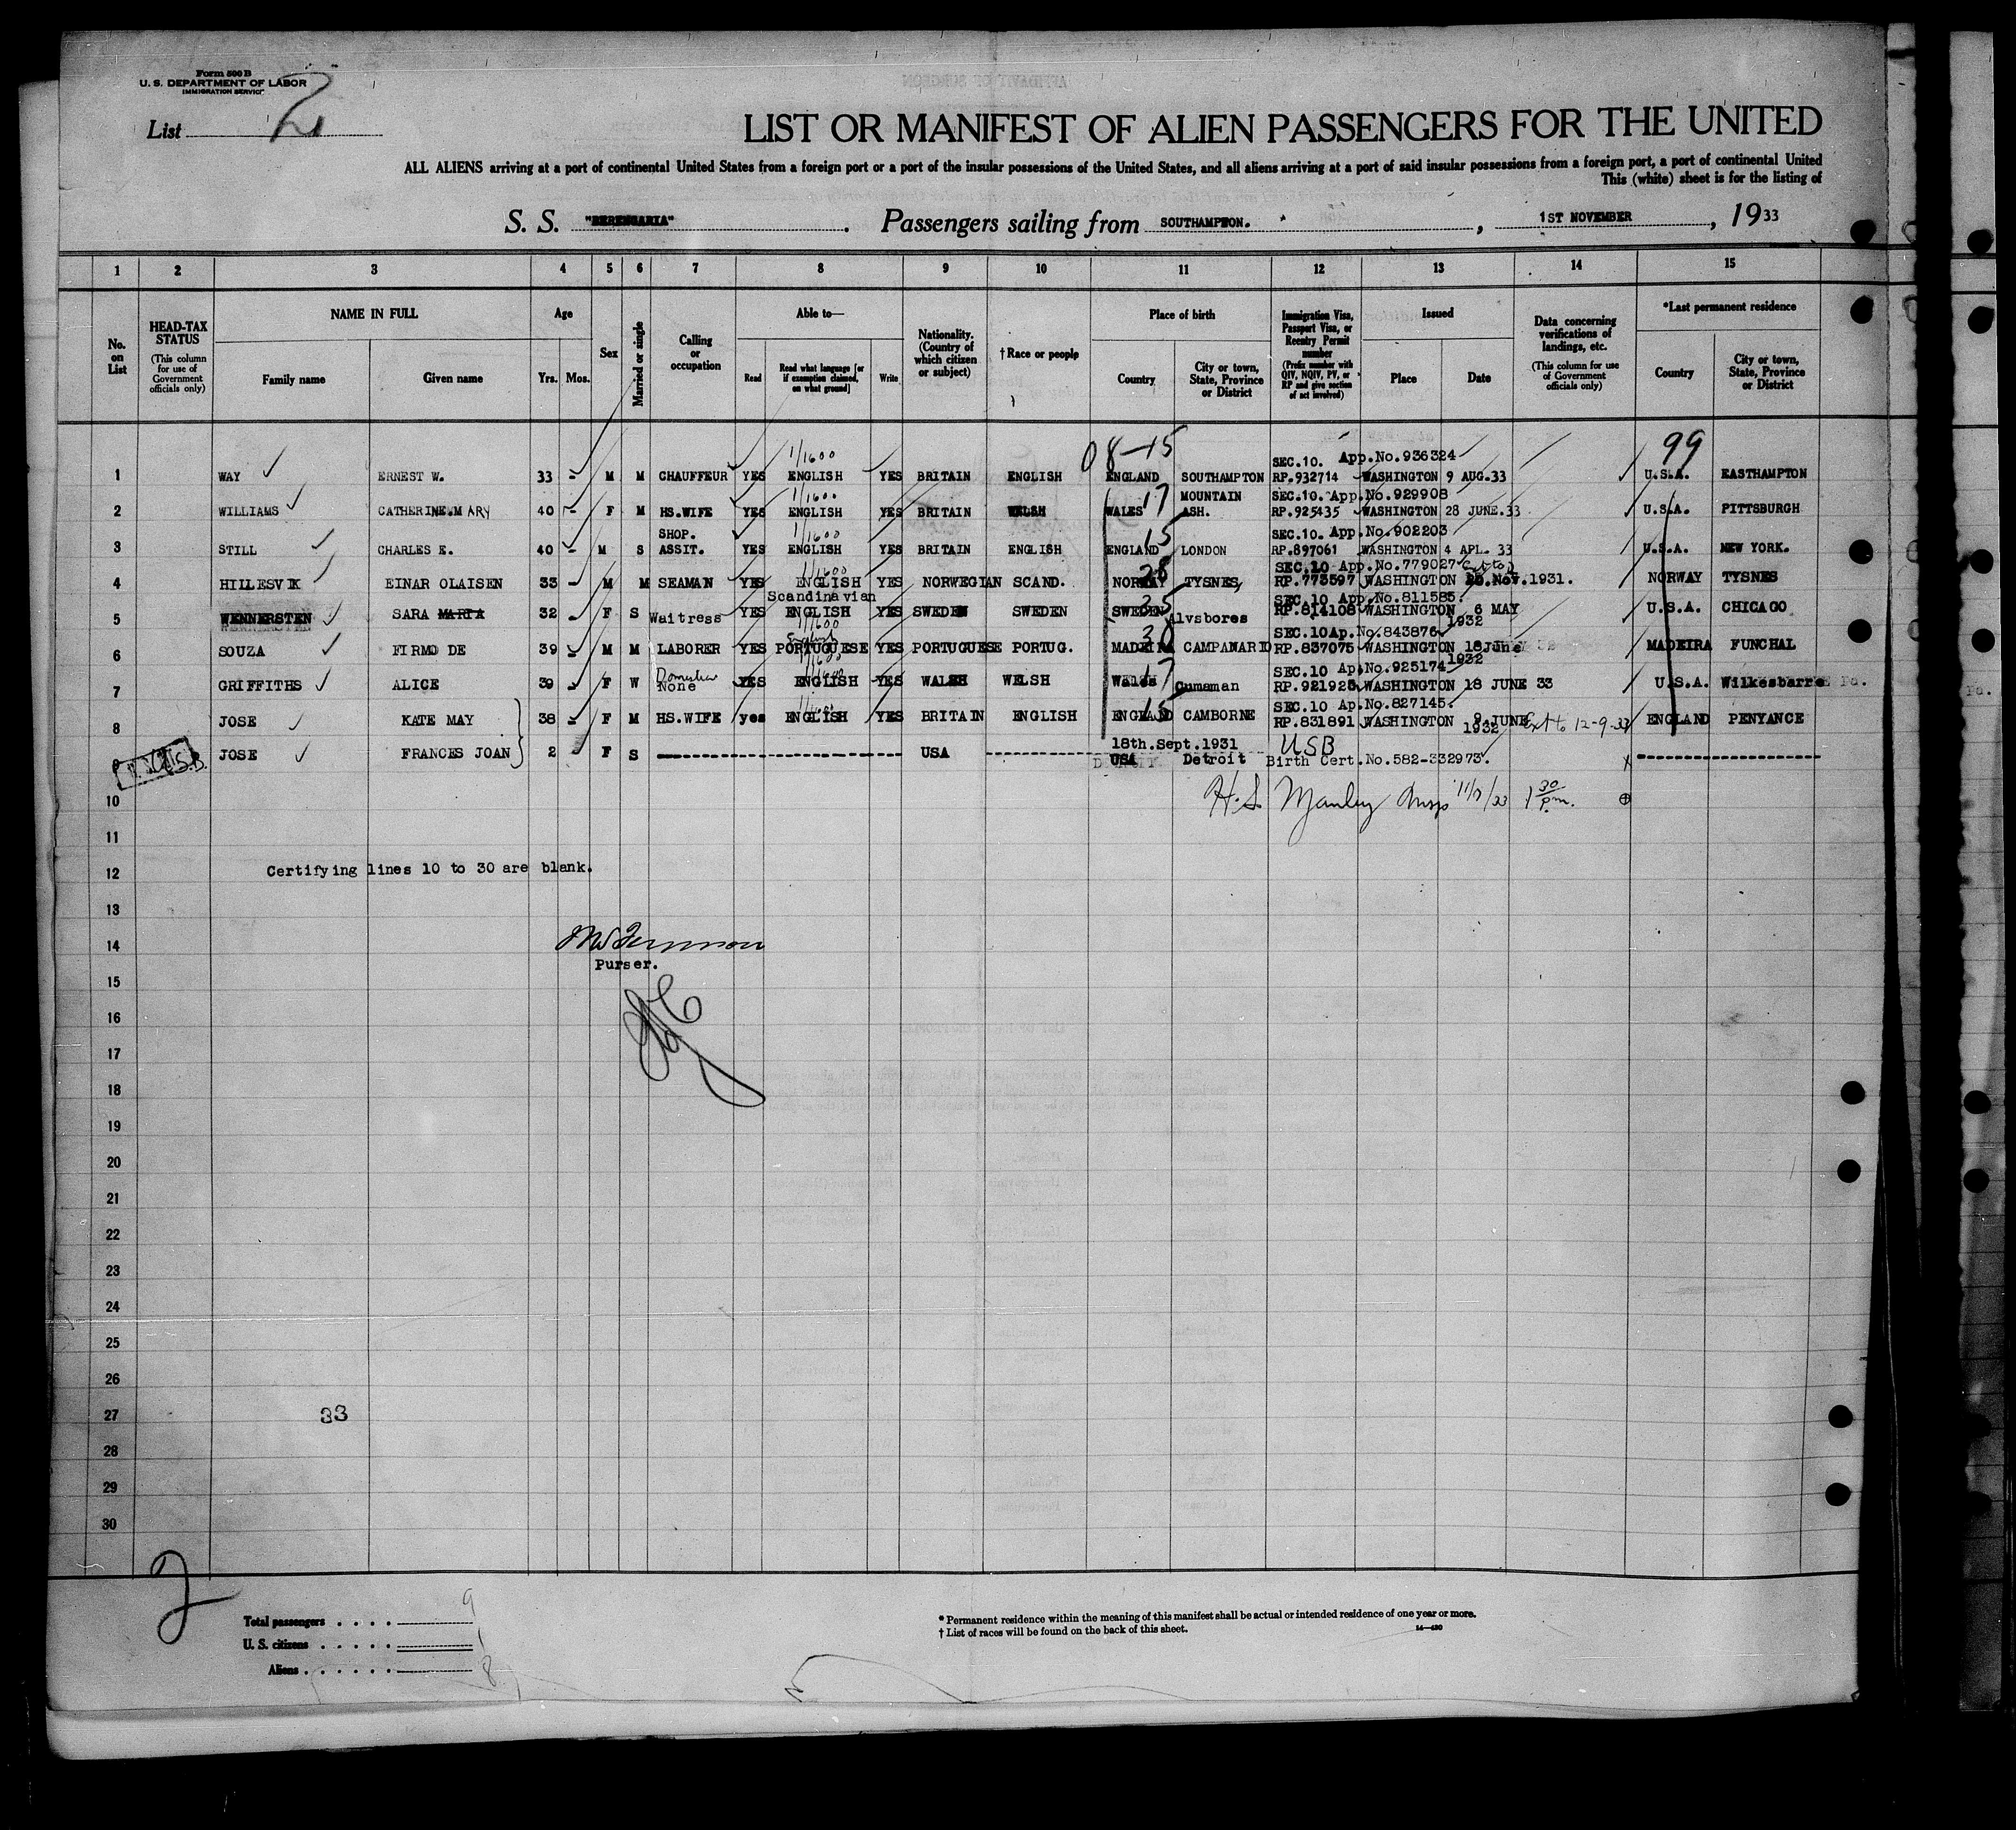 Form 500 B
U. S. DEPARTMENT OF LABOR
IMMIGRATION SERVICE
List 2
LIST OR MANIFEST OF ALIEN PASSENGERS FOR THE UNITED
ALL ALIENS arriving at a port of continental United States from a foreign port or a port of the insular possessions of the United States, and all aliens arriving at a port of said insular possessions from a foreign port, a port of continental United
This (white) sheet is for the listing of
S. S. "BERENGARIA". Passengers sailing from SOUTHAMPTON. , 1ST NOVEMBER , 1933
1 2 3 4 5 6 7 8 9 10 11 12 13 14 15
No. on List
HEAD-TAX STATUS (This column for use of Government officials only)
NAME IN FULL
Family name Given name
Age
Yrs. Mos.
Sex
Married or single
Calling or occupation
Able to—
Read Read what language [or if exemption claimed, on what ground] Write
Nationality. (Country of which citizen or subject)
†Race or people
Place of birth
Country City or town, State, Province or District
Immigration Visa, Passport Visa, or Reentry Permit number (Prefix number with QIV, NQIV, PV, or RP and give section of act involved)
Issued
Place Date
Data concerning verifications of landings, etc. (This column for use of Government officials only)
*Last permanent residence
Country City or town, State, Province or District
1/1600 08-15 SEC.10. App.No.936324 99
1 WAY ERNEST W. 33 - M M CHAUFFEUR YES ENGLISH YES BRITAIN ENGLISH ENGLAND SOUTHAMPTON RP.932714 WASHINGTON 9 AUG.33 U.S.A. EASTHAMPTON
1/1600 17 MOUNTAIN SEC.10. App.No.929908
2 WILLIAMS CATHERINE MARY 40 - F M HS.WIFE YES ENGLISH YES BRITAIN WELSH WALES ASH. RP.925435 WASHINGTON 28 JUNE.33 U.S.A. PITTSBURGH
SHOP. 1/1600 15 SEC.10. App.No.902203
3 STILL CHARLES E. 40 - M S ASSIT. YES ENGLISH YES BRITAIN ENGLISH ENGLAND LONDON RP.897061 WASHINGTON 4 APL. 33 U.S.A. NEW YORK.
1/1600 28 SEC.10 App.No.779027
4 HILLESVIK EINAR OLAISEN 33 - M M SEAMAN YES ENGLISH YES NORWEGIAN SCAND. NORWAY TYSNES, RP.773597 WASHINGTON Nov.1931. NORWAY TYSNES
Scandinavian 35 SEC.10 App.No.811585.
5 WENNERSTEN SARA MARTA 32 F S Waitress YES ENGLISH YES SWEDEN SWEDEN SWEDEN Alvsbores RP.814108 WASHINGTON 6 MAY 1932 U.S.A. CHICAGO
1/1600 English 30 SEC.10Ap.No.843876
6 SOUZA FIRMO DE 39 M M LABORER YES PORTUGUESE YES PORTUGUESE PORTUG. MADEIRA CAMPANARIO RP.837075 WASHINGTON 18June 1932 MADEIRA FUNCHAL
Domestic 1/1600 17 SEC.10 Ap.No.925174
7 GRIFFITHS ALICE 39 F W None YES ENGLISH YES WALES WELSH Wales Cumaman RP.921923 WASHINGTON 18 JUNE 33 U.S.A. Wilkesbarre Pa.
15 SEC.10 Ap.No.827145.
8 JOSE KATE MAY 38 F M HS.WIFE yes ENGLISH YES BRITAIN ENGLISH ENGLAND CAMBORNE RP.831891 WASHINGTON 9 JUNE 1932 Ext to 12-9-33 ENGLAND PENYANCE
18th.Sept.1931 USB
9 JOSE FRANCES JOAN 2 F S USA USA Detroit Birth Cert.No.582-332973.
10 H.S. Manley Insp 1 30 p.m.
11
12 Certifying lines 10 to 30 are blank.
13
14
Purser.
15
16
17
18
19
20
21
22
23
24
25
26
27 33
28
29
30
2
Total passengers . . . . 9
U. S. citizens . . . . . 1
Aliens . . . . . . 8
* Permanent residence within the meaning of this manifest shall be actual or intended residence of one year or more.
† List of races will be found on the back of this sheet.
14—430